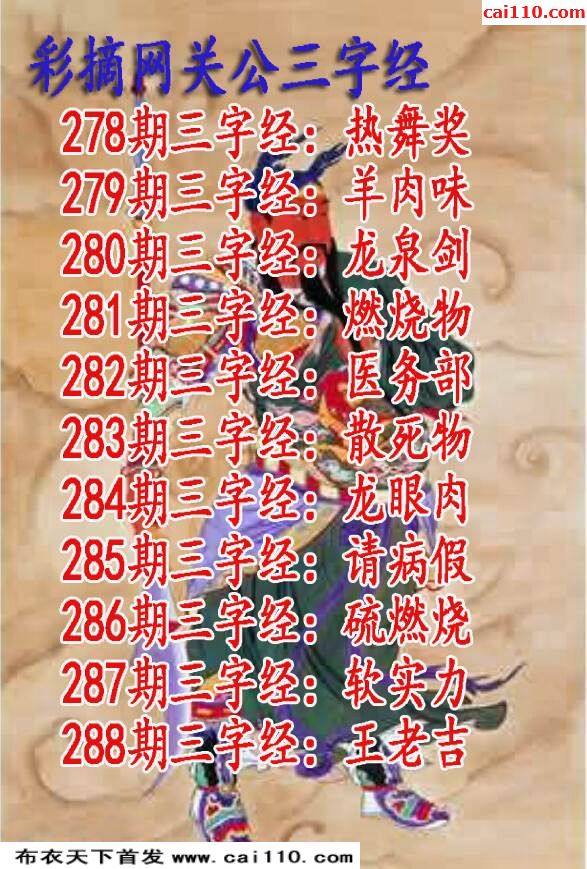 cai110.com
彩摘网关公三字经
278期三字经：热舞奖
279期三字经：羊肉味
280期三字经：龙泉剑
281期三字经：燃烧物
282期三字经：医务部
283期三字经：散死物
284期三字经：龙眼肉
285期三字经：请病假
286期三字经：硫燃烧
287期三字经：软实力
288期三字经：王老吉
布衣天下首发 www.cai110.com